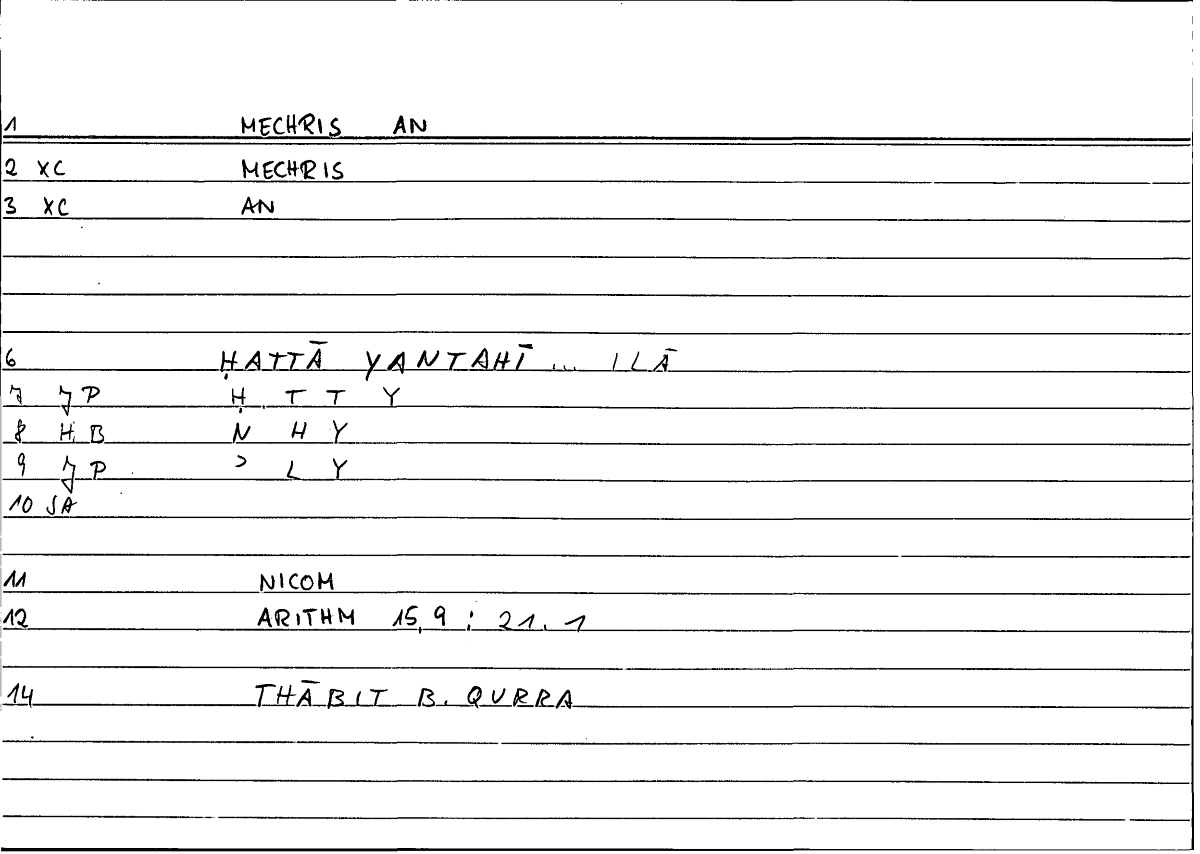 1 MECHRIS AN
2 XC MECHRIS
3 XC AN
6 ḤATTĀ YANTAHĪ ... ILĀ
7 JP Ḥ T T Y
8 HB N H Y
9 JP ʾ L Y
10 JA
11 NICOM
12 ARITHM 15,9 : 21.1
14 THĀBIT B. QURRA